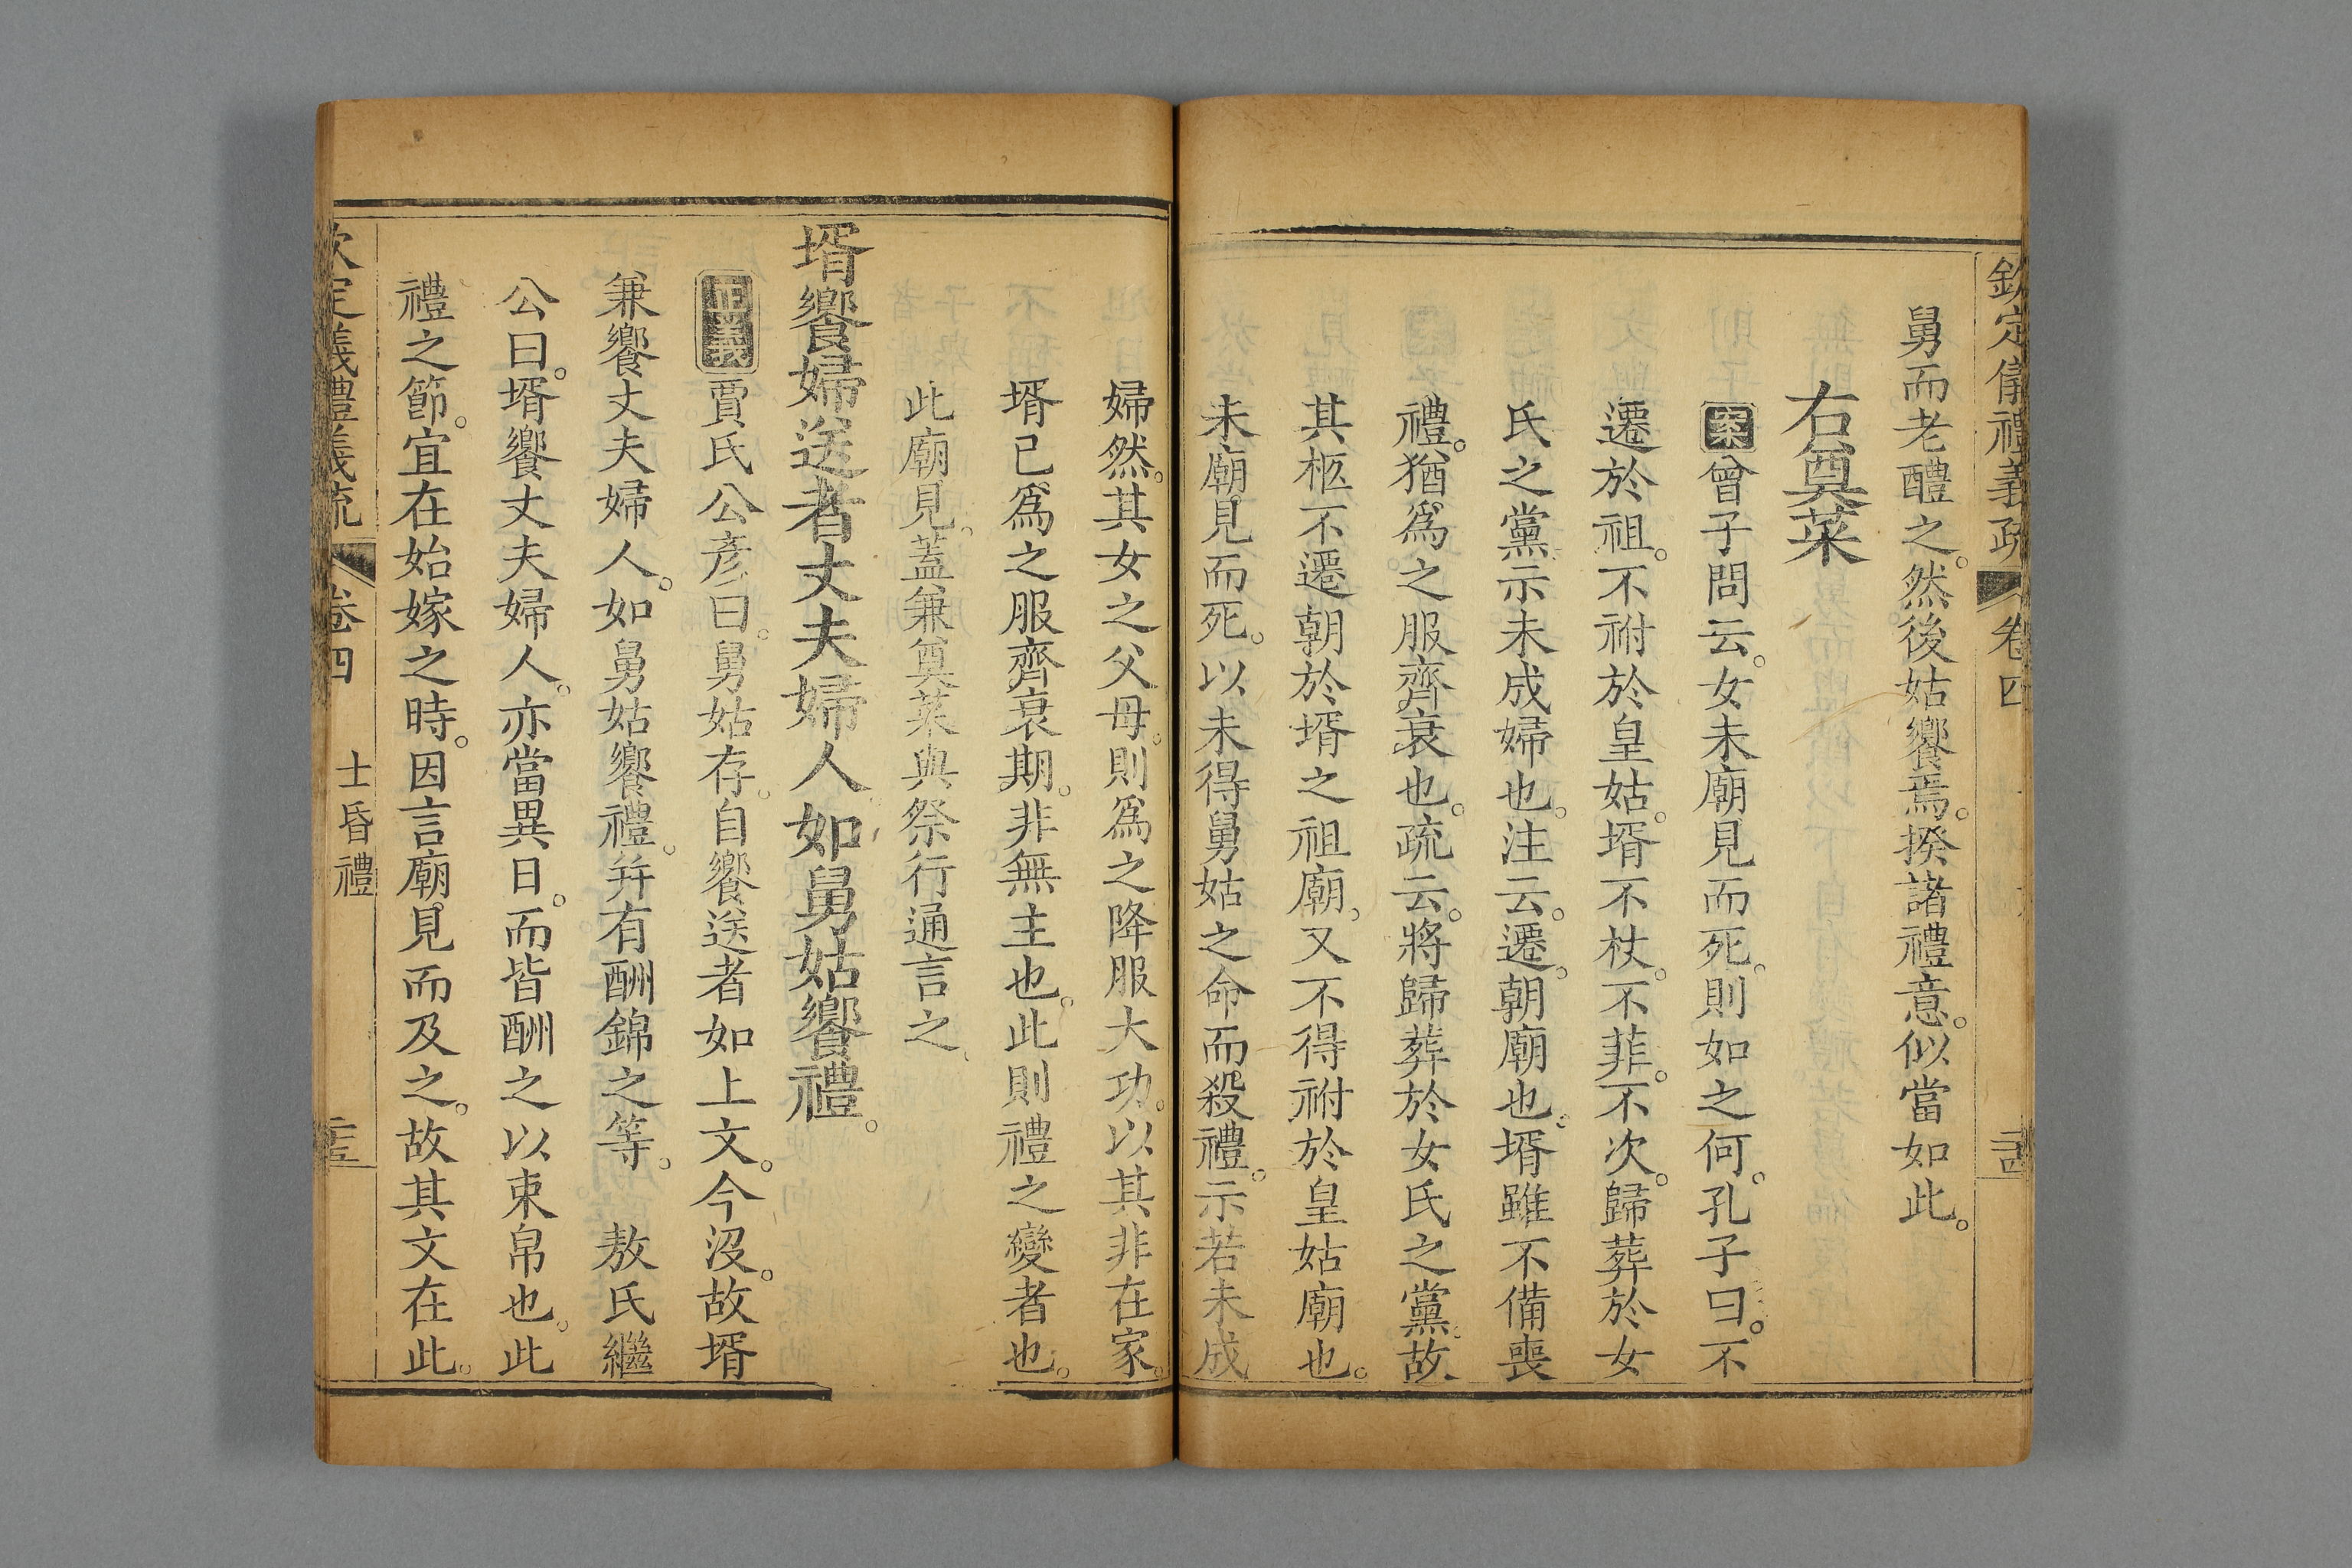 欽定儀禮義疏 卷四
舅而老醴之。然後姑饗焉。揆諸禮意。似當如此。
右奠菜
案 曾子問云。女未廟見而死。則如之何。孔子曰。不
遷於祖。不祔於皇姑。壻不杖。不菲。不次。歸葬於女
氏之黨。示未成婦也。注云。遷。朝廟也。壻雖不備喪
禮。猶為之服齊衰也。疏云。將歸葬於女氏之黨。故
其柩不遷朝於壻之祖廟。又不得祔於皇姑廟也。
未廟見而死。以未得舅姑之命而殺禮。示若未成
婦然。其女之父母。則為之降服大功。以其非在家。
壻已為之服齊衰期。非無主也。此則禮之變者也。
此廟見。蓋兼奠菜與祭行通言之、
壻饗婦送者丈夫婦人如舅姑饗禮。
正義 賈氏公彥曰。舅姑存。自饗送者如上文。今沒。故壻
兼饗丈夫婦人。如舅姑饗禮。并有酬錦之等。 敖氏繼
公曰。壻饗丈夫婦人。亦當異日。而皆酬之以束帛也。此
禮之節。宜在始嫁之時。因言廟見而及之。故其文在此。
欽定義禮義疏 卷四 士昏禮